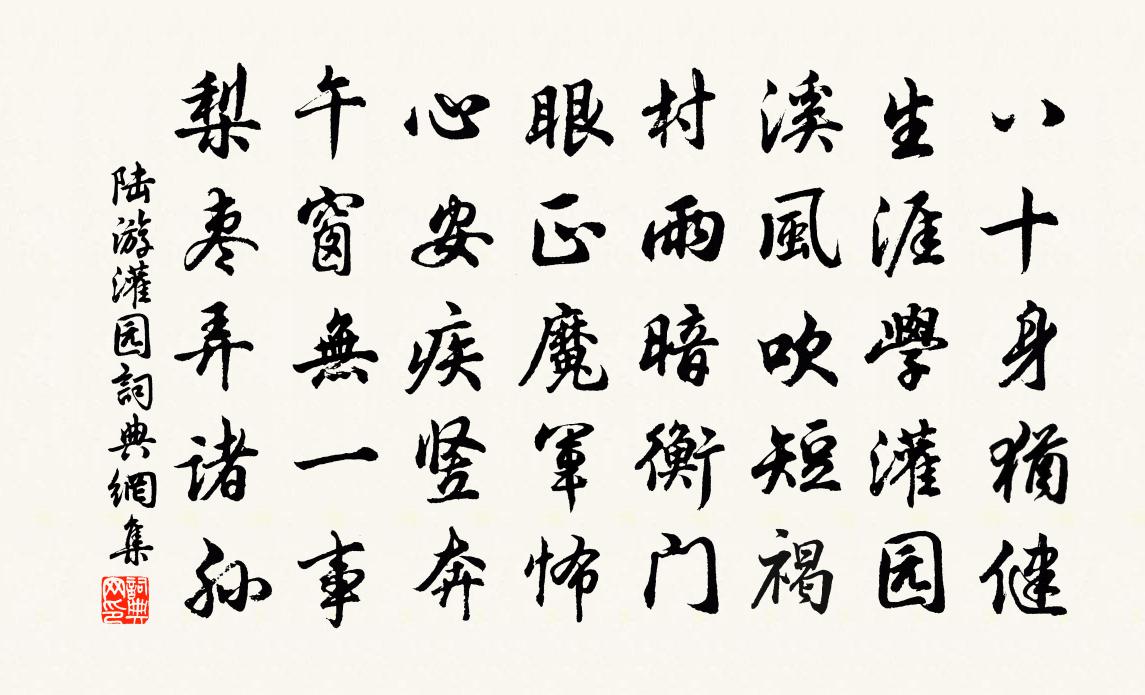 八十身猶健
生涯學灌园
溪風吹短褐
村雨暗衡门
眼正魔軍怖
心安疾竖奔
午窗無一事
梨枣弄诸孙
陆游灌园詞典網集
詞典
网印